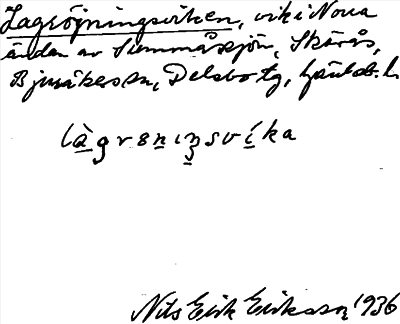 Lagröjningsviken, vik i Norra
ändan av Summåssjön, Skårås,
Bjuråkers sn, Delsbo tg, Gävleb. l.
làgrsnıŋsvíka
Nils Erik Eriksson 1936